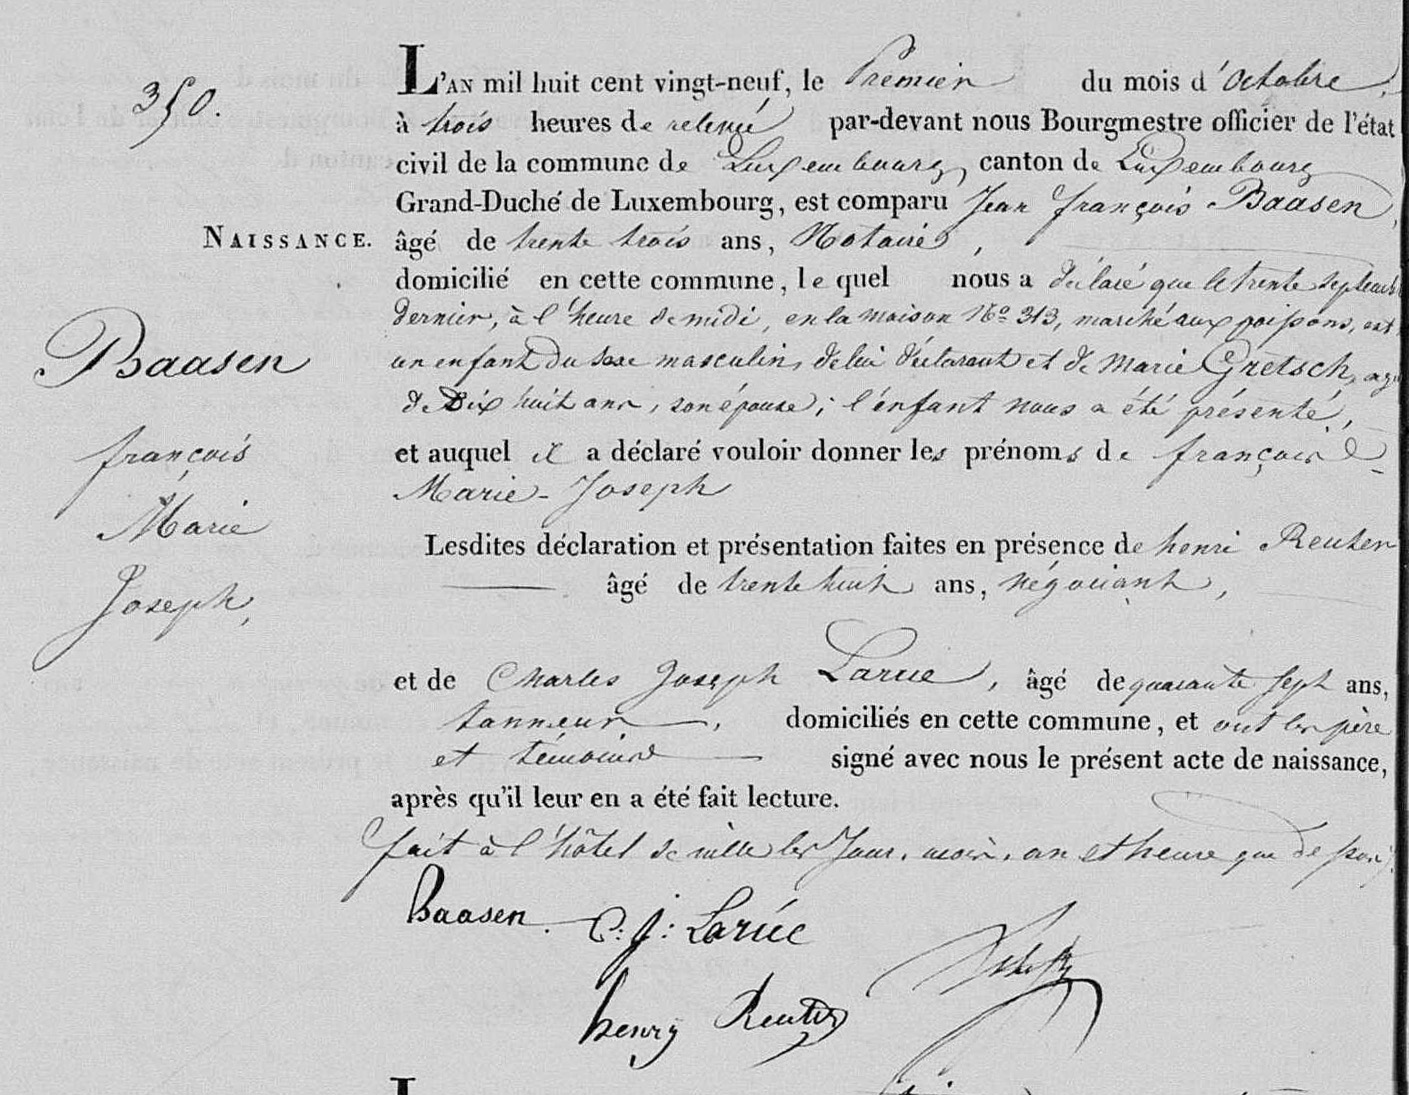 350.
NAISSANCE.
Baasen
françois
Marie
Joseph,
L'AN mil huit cent vingt-neuf, le Premier du mois d'Octobre,
à trois heures de relevée par-devant nous Bourgmestre officier de l'état
civil de la commune de Luxembourg, canton de Luxembourg
Grand-Duché de Luxembourg, est comparu Jean françois Baasen,
âgé de trente trois ans, Notaire,
domicilié en cette commune, le quel nous a déclaré que le trente septemb
dernier, à l'heure de midi, en la maison No 313, marché aux poissons, est
un enfant du sexe masculin, de lui déclarant et de Marie Gretsch, agé
de Dix huit ans, son épouse; l'enfant nous a été présenté,
et auquel il a déclaré vouloir donner les prénoms de françois
Marie-Joseph
Lesdites déclaration et présentation faites en présence de henri Reuter
âgé de trente huit ans, négociant,
et de Charles Joseph Larue, âgé de quarante sept ans,
tanneur, domiciliés en cette commune, et ont les père
et témoins signé avec nous le présent acte de naissance,
après qu'il leur en a été fait lecture.
fait à l'hôtel de ville les Jour, mois, an et heure que de
Baasen. C: J: Larüe
henry Reuter